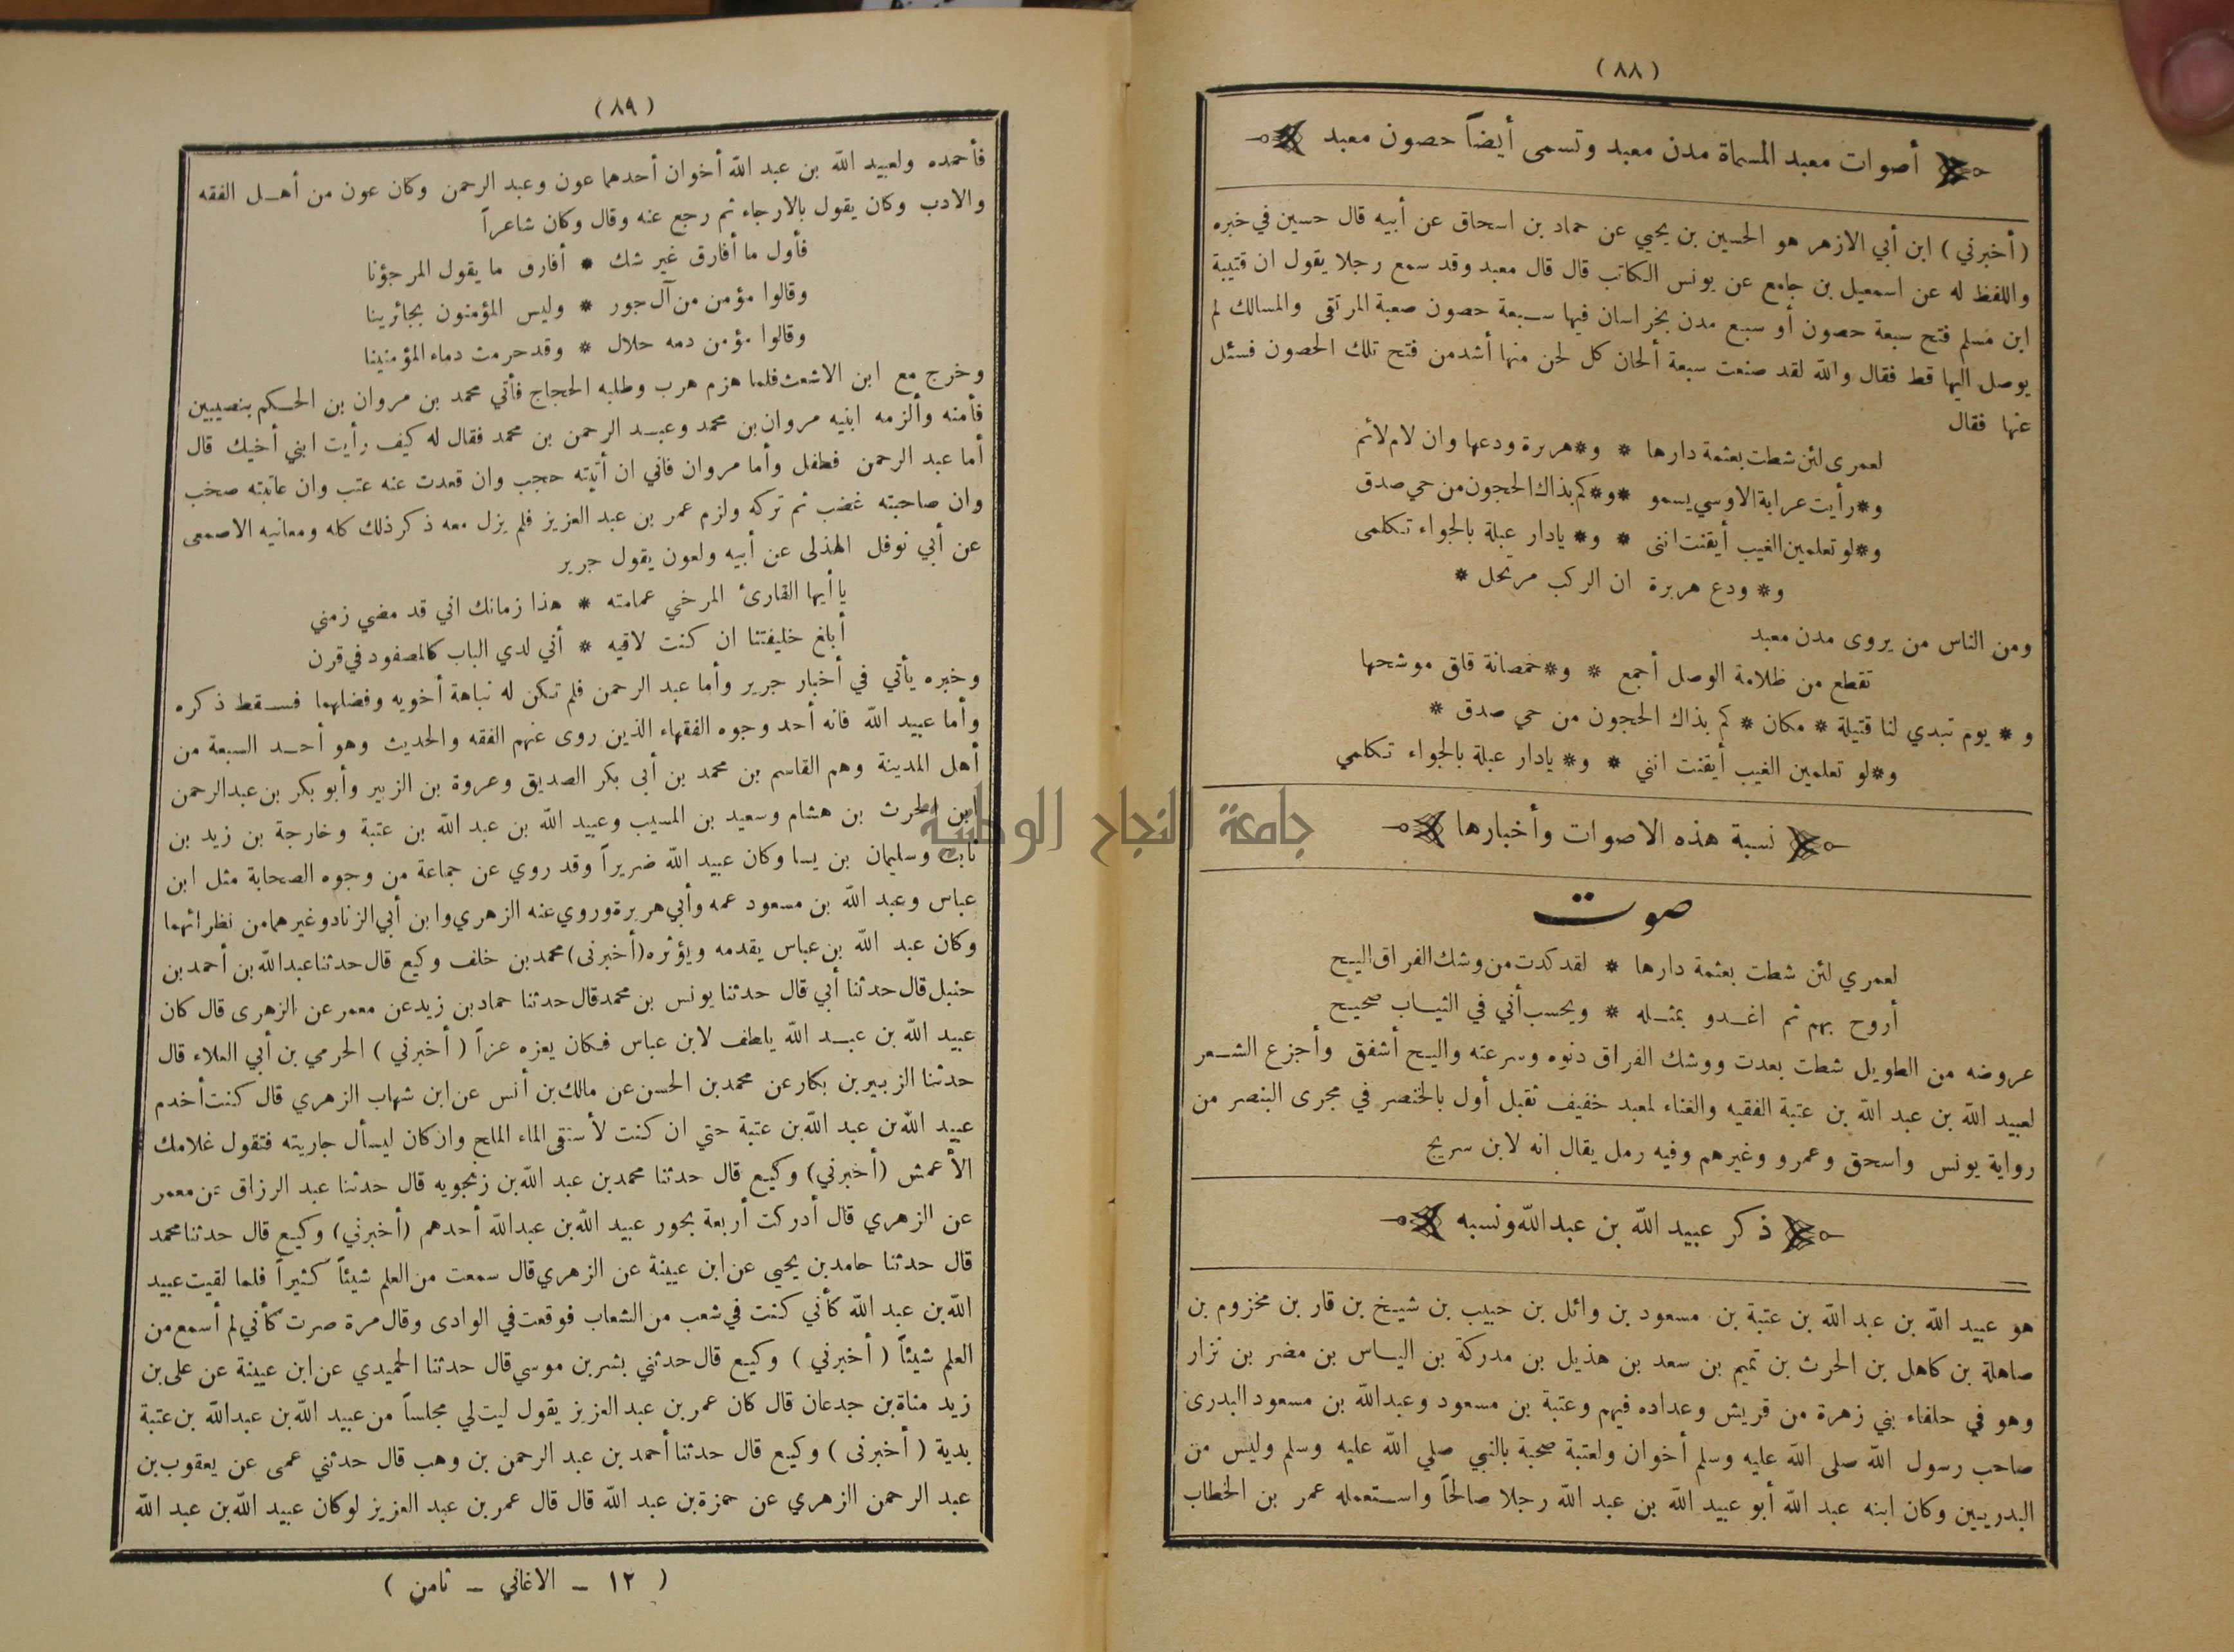 (٨٨)
أصوات معبد المسماة مدن معبد وتسمى أيضاً حصون معبد
(أخبرني) ابن أبي الازهر هو الحسين بن يحيي عن حماد بن اسحاق عن أبيه قال حسين في خبره
واللفظ له عن اسمعيل بن جامع عن يونس الكاتب قال قال معبد وقد سمع رجلا يقول ان قتيبة
ابن مسلم فتح سبعة حصون أو سبع مدن بخراسان فيها سبعة حصون صعبة المرتقى والمسالك لم
يوصل اليها قط فقال والله لقد صنعت سبعة ألحان كل لحن منها أشد من فتح تلك الحصون فسئل
عنها فقال
لعمرى لئن شطت بعثمة دارها * و*هريرة ودعها وان لام لائم
و*رأيت عرابة الاوسي يسمو *و*كم بذاك الحجون من حي صدق
و*لو تعلمين الغيب أيقنت اننى * و* يادار عبلة بالجواء تكلمى
و* ودع هريرة ان الركب مرتحل *
ومن الناس من يروى مدن معبد
تقطع من ظلامة الوصل أجمع * و*خمصانة قلق موشحها
و * يوم تبدي لنا قتيلة * مكان * كم بذاك الحجون من حي صدق *
و*لو تعلمين الغيب أيقنت انني * و* يادار عبلة بالجواء تكلمي
نسبة هذه الاصوات وأخبارها
صوت
لعمري لئن شطت بعثمة دارها * لقد كدت من وشك الفراق اليح
أروح بهم ثم اغدو بمثله * ويحسب أني في الثياب صحيح
عروضه من الطويل شطت بعدت ووشك الفراق دنوه وسرعته واليح أشفق وأجزع الشعر
لعبيد الله بن عبد الله بن عتبة الفقيه والغناء لمعبد خفيف ثقيل أول بالخنصر في مجرى البنصر من
رواية يونس واسحق وعمرو وغيرهم وفيه رمل يقال انه لابن سريج
ذكر عبيد الله بن عبد الله ونسبه
هو عبيد الله بن عبد الله بن عتبة بن مسعود بن وائل بن حبيب بن شيخ بن قار بن مخزوم بن
صاهلة بن كاهل بن الحرث بن تميم بن سعد بن هذيل بن مدركة بن الياس بن مضر بن نزار
وهو في حلفاء بني زهرة من قريش وعداده فيهم وعتبة بن مسعود وعبد الله بن مسعود البدرى
صاحب رسول الله صلى الله عليه وسلم أخوان ولعتبة صحبة بالنبي صلي الله عليه وسلم وليس من
البدريين وكان ابنه عبد الله أبو عبيد الله بن عبد الله رجلا صالحاً واستعمله عمر بن الخطاب
(٨٩)
فأحمده ولعبيد الله بن عبد الله أخوان أحدهما عون وعبد الرحمن وكان عون من أهل الفقه
والادب وكان يقول بالارجاء ثم رجع عنه وقال وكان شاعراً
فأول ما أفارق غير شك * أفارق ما يقول المرجؤنا
وقالوا مؤمن من آل جور * وليس المؤمنون بجائرينا
وقالوا مؤمن دمه حلال * وقد حرمت دماء المؤمنينا
وخرج مع ابن الاشعث فلما هزم هرب وطلبه الحجاج فأتي محمد بن مروان بن الحكم بنصيبين
فأمنه وألزمه ابنيه مروان بن محمد وعبد الرحمن بن محمد فقال له كيف رأيت ابني أخيك قال
أما عبد الرحمن فطفل وأما مروان فاني ان أتيته حجب وان قعدت عنه عتب وان عاتبته صخب
وان صاحبته غضب ثم تركه ولزم عمر بن عبد العزيز فلم يزل معه ذكر ذلك كله ومعانيه الاصمعى
عن أبي نوفل الهذلى عن أبيه ولعون يقول جرير
يا أيها القارئ المرخي عمامته * هذا زمانك اني قد مضي زمني
أبلغ خليفتنا ان كنت لاقيه * أني لدي الباب كالمصفود في قرن
وخبره يأتي في أخبار جرير وأما عبد الرحمن فلم تكن له نباهة أخويه وفضلهما فسقط ذكره
وأما عبيد الله فانه أحد وجوه الفقهاء الذين روى عنهم الفقه والحديث وهو أحد السبعة من
أهل المدينة وهم القاسم بن محمد بن أبى بكر الصديق وعروة بن الزبير وأبو بكر بن عبد الرحمن
ابن الحرث بن هشام وسعيد بن المسيب وعبيد الله بن عبد الله بن عتبة وخارجة بن زيد بن
ثابت وسليمان بن يسا وكان عبيد الله ضريراً وقد روي عن جماعة من وجوه الصحابة مثل ابن
عباس وعبد الله بن مسعود عمه وأبي هريرة وروي عنه الزهري وابن أبي الزناد وغيرهما من نظرائهما
وكان عبد الله بن عباس يقدمه ويؤثره (أخبرنى) محمد بن خلف وكيع قال حدثنا عبد الله بن أحمد بن
حنبل قال حدثنا أبي قال حدثنا يونس بن محمد قال حدثنا حماد بن زيد عن معمر عن الزهرى قال كان
عبيد الله بن عبد الله ياطف لابن عباس فكان يعزه عزاً (أخبرني) الحرمي بن أبي العلاء قال
حدثنا الزبير بن بكار عن محمد بن الحسن عن مالك بن أنس عن ابن شهاب الزهري قال كنت أخدم
عبيد الله بن عبد الله بن عتبة حتي ان كنت لأستقى الماء الملح وان كان ليسأل جاريته فتقول غلامك
الأعمش (أخبرني) وكيع قال حدثنا محمد بن عبد الله بن زنجويه قال حدثنا عبد الرزاق عن معمر
عن الزهري قال أدركت أربعة بحور عبيد الله بن عبد الله أحدهم (أخبرني) وكيع قال حدثنا محمد
قال حدثنا حامد بن يحيى عن ابن عيينة عن الزهري قال سمعت من العلم شيئاً كثيراً فلما لقيت عبيد
الله بن عبد الله كأني كنت في شعب من الشعاب فوقعت في الوادى وقال مرة صرت كأني لم أسمع من
العلم شيئاً (أخبرني) وكيع قال حدثني بشر بن موسي قال حدثنا الحميدي عن ابن عيينة عن على بن
زيد مناة بن جدعان قال كان عمر بن عبد العزيز يقول ليت لي مجلساً من عبيد الله بن عبد الله بن عتبة
بدية (أخبرنى) وكيع قال حدثنا أحمد بن عبد الرحمن بن وهب قال حدثني عمى عن يعقوب بن
عبد الرحمن الزهري عن حمزة بن عبد الله قال قال عمر بن عبد العزيز لو كان عبيد الله بن عبد الله
(١٢ – الاغاني – ثامن)
جامعة النجاح الوطنية